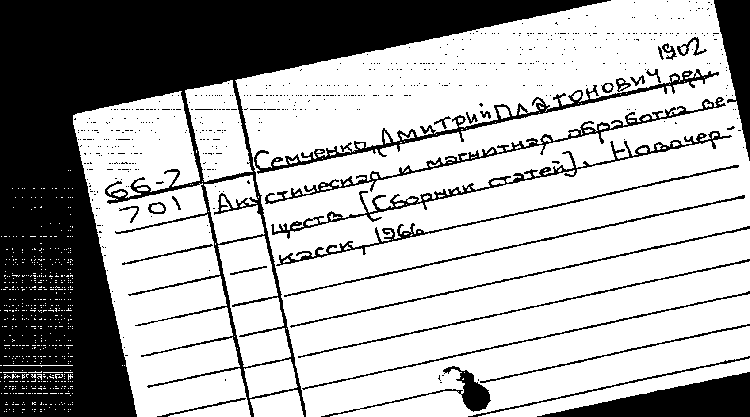 1902
Семченко, Дмитрий Платонович, ред.
66-7
701
Акустическая и магнитная обработка ве-
ществ. [Сборник статей]. Новочер-
касск, 1966.